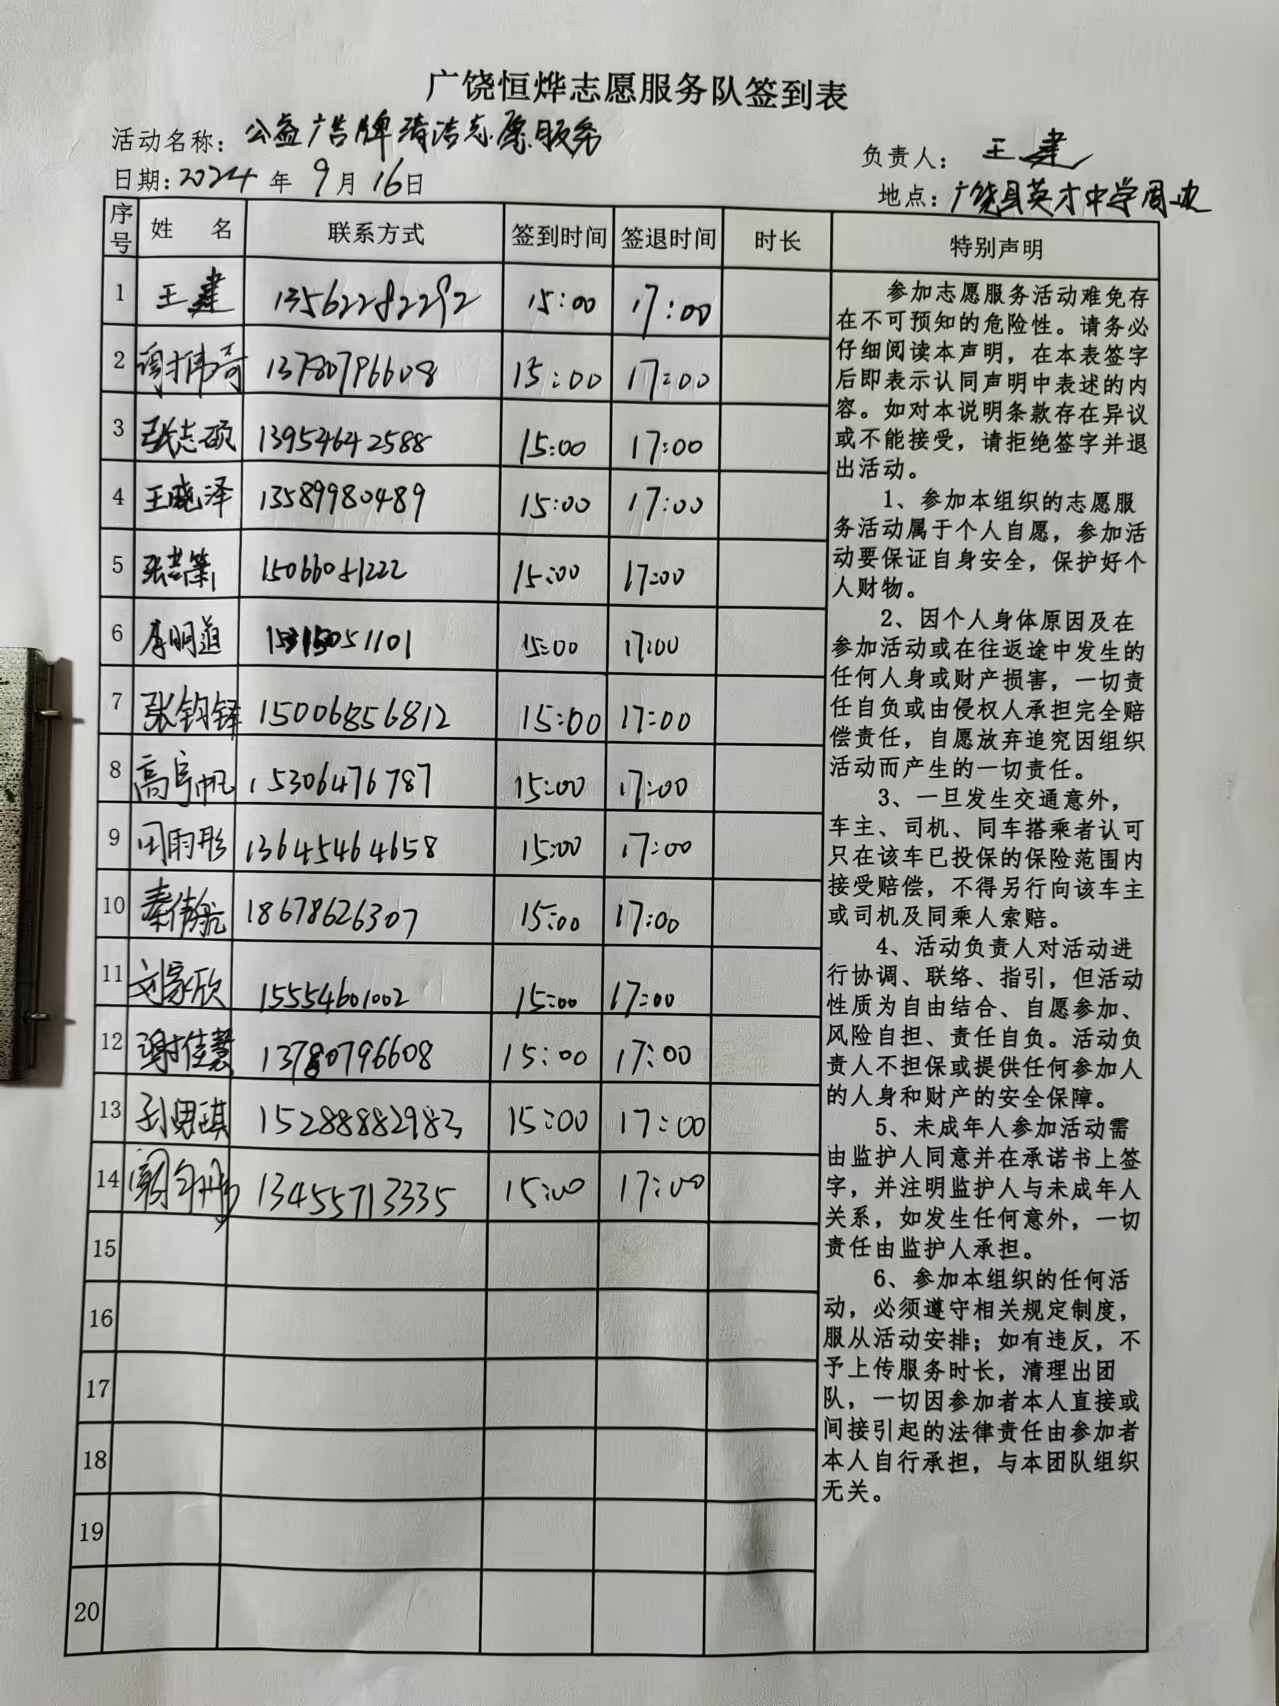 广饶恒烨志愿服务队签到表
活动名称：公益广告牌清洁志愿服务
负责人：王建
日期：2024年9月16日
地点：广饶县英才中学周边
序号 姓名 联系方式 签到时间 签退时间 时长 特别声明
1 王建 13562282292 15:00 17:00
2 谢伟奇 13780796608 15:00 17:00
3 张志硕 13954642588 15:00 17:00
4 王晓泽 13589980489 15:00 17:00
5 15066051222 15:00 17:00
6 李明道 15315051101 15:00 17:00
7 张钧铎 15006856812 15:00 17:00
8 高宇帆 15306476787 15:00 17:00
9 田雨彤 13645464658 15:00 17:00
10 秦伟航 18678626307 15:00 17:00
11 刘家欣 15554601002 15:00 17:00
12 谢佳慧 13780796608 15:00 17:00
13 孙思琪 15288882983 15:00 17:00
14 13455713335 15:00 17:00
15
16
17
18
19
20
参加志愿服务活动难免存
在不可预知的危险性。请务必
仔细阅读本声明，在本表签字
后即表示认同声明中表述的内
容。如对本说明条款存在异议
或不能接受，请拒绝签字并退
出活动。
1、参加本组织的志愿服
务活动属于个人自愿，参加活
动要保证自身安全，保护好个
人财物。
2、因个人身体原因及在
参加活动或在往返途中发生的
任何人身或财产损害，一切责
任自负或由侵权人承担完全赔
偿责任，自愿放弃追究因组织
活动而产生的一切责任。
3、一旦发生交通意外，
车主、司机、同车搭乘者认可
只在该车已投保的保险范围内
接受赔偿，不得另行向该车主
或司机及同乘人索赔。
4、活动负责人对活动进
行协调、联络、指引，但活动
性质为自由结合、自愿参加、
风险自担、责任自负。活动负
责人不担保或提供任何参加人
的人身和财产的安全保障。
5、未成年人参加活动需
由监护人同意并在承诺书上签
字，并注明监护人与未成年人
关系，如发生任何意外，一切
责任由监护人承担。
6、参加本组织的任何活
动，必须遵守相关规定制度，
服从活动安排；如有违反，不
予上传服务时长，清理出团
队，一切因参加者本人直接或
间接引起的法律责任由参加者
本人自行承担，与本团队组织
无关。